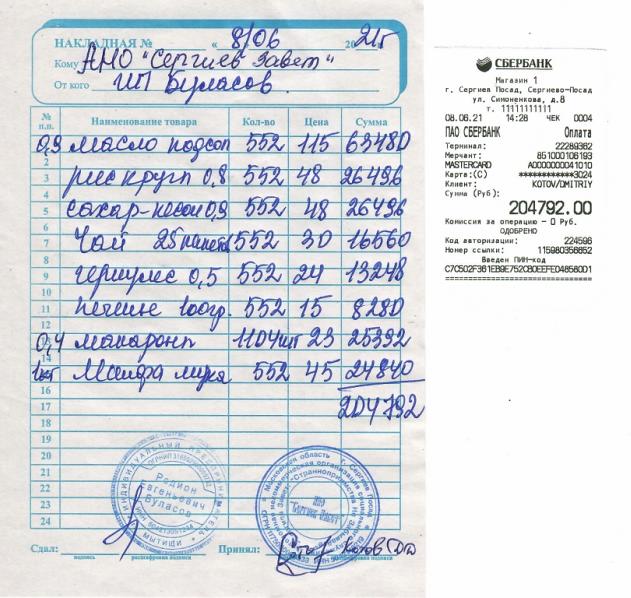 НАКЛАДНАЯ № « 8/06 2021г
Кому АНО "Сергиев Завет"
От кого ИП Буласов.
№ п.п. Наименование товара Кол-во Цена Сумма
0,9 масло подсол 552 115 63480
рис кругл 0,8 552 48 26496
сахар-песок 0,9 552 48 26496
Чай 25 пакет 552 30 16560
геркулес 0,5 552 24 13248
печенье 100гр. 552 15 8280
0,4 макарон 1104шт 23 25392
1кг мука 552 45 24840
204792
1
2
3
4
5
6
7
8
9
10
11
12
14
16
17
18
19
20
21
22
23
24
ИНДИВИДУАЛЬНЫЙ ПРЕДПРИНИМАТЕЛЬ
Родион
Евгеньевич
Буласов
МЫТИЩИ
Московская область г. Сергиев Посад
Сдал: Принял: Котов
подпись расшифровка подписи подпись расшифровка подписи
СБЕРБАНК
Магазин 1
г. Сергиев Посад, Сергиево-Посад
ул. Симоненкова, д.8
т. 11111111111
08.06.21 14:28 ЧЕК 0004
ПАО СБЕРБАНК Оплата
Терминал: 22289362
Мерчант: 851000106193
MASTERCARD A0000000041010
Карта:(C) ************3024
Клиент: KOTOV/DMITRIY
Сумма (Руб):
204792.00
Комиссия за операцию - 0 Руб.
ОДОБРЕНО
Код авторизации: 224596
Номер ссылки: 115980358652
Введен ПИН-код
C7C502F361EB9E752CB0EEFE048580D1